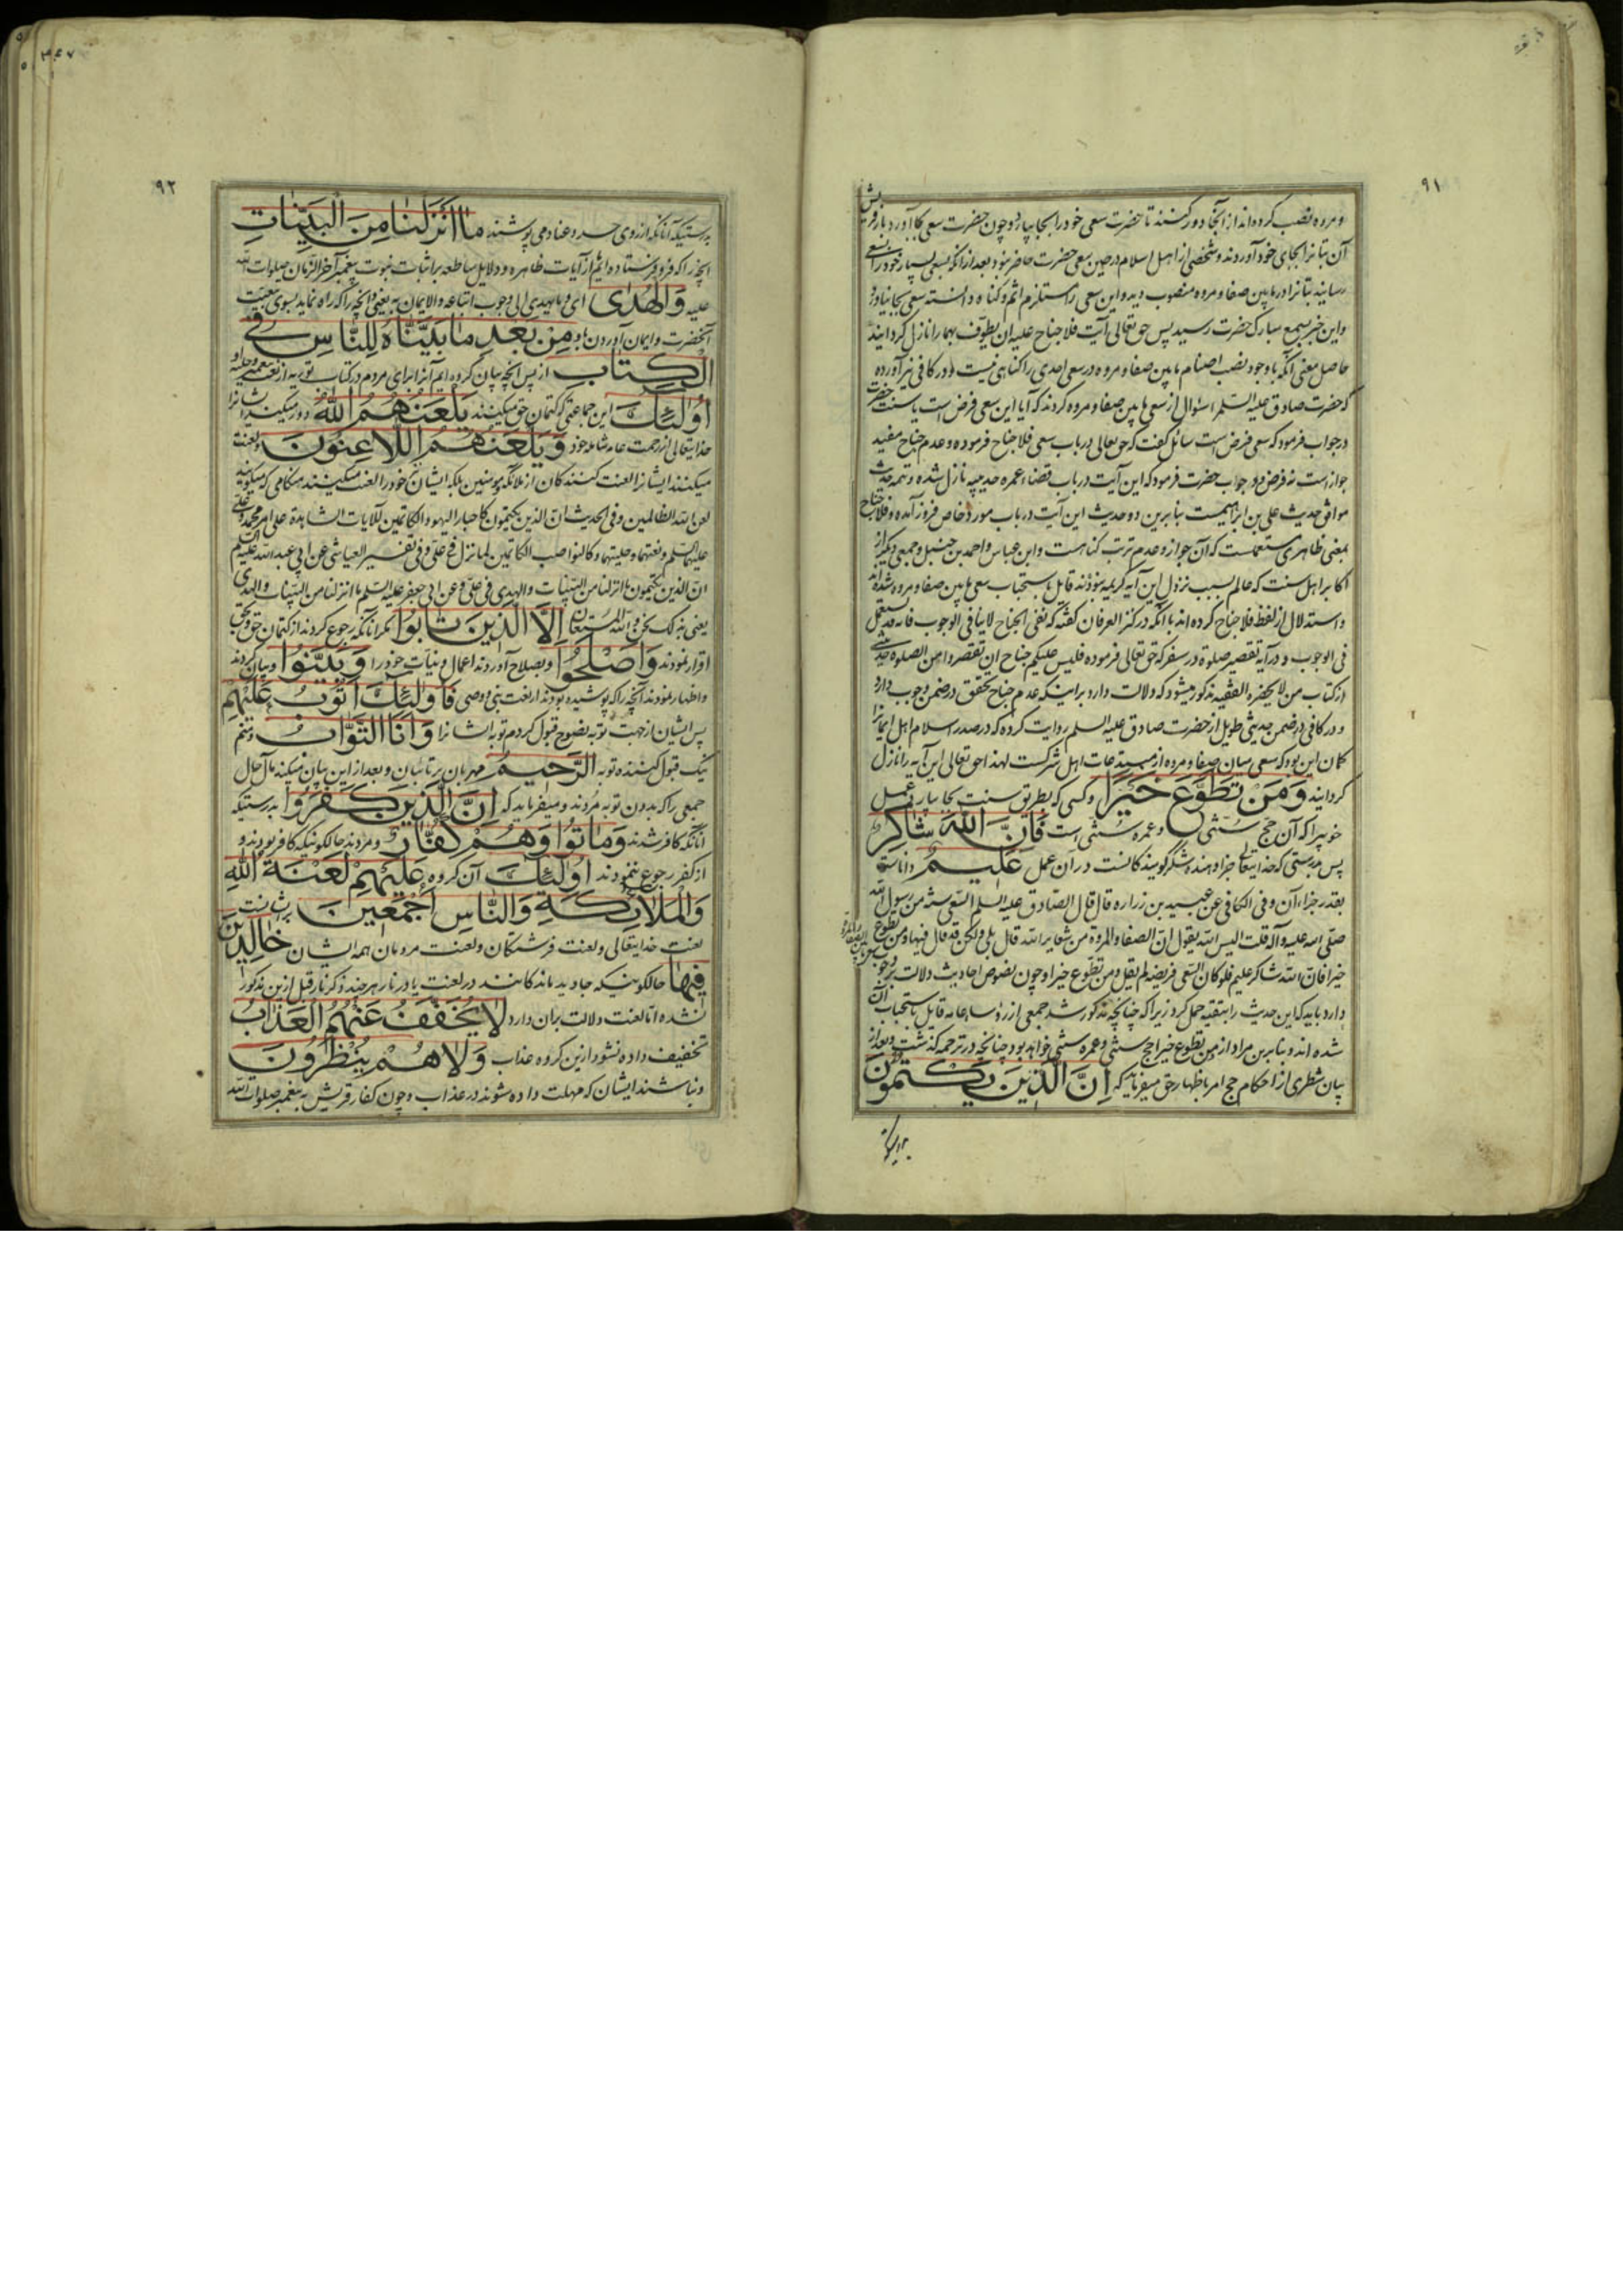 ۹۱
و مروه نصب کرده‌اند از آنجا دور کنند تا حضرت سعی خود را بجا بیارد و چون حضرت سعی بجا آورد باز قریش
آن بتانرا بجای خود آوردند و شخصی از اهل اسلام در حین سعی حضرت حاضر نبود بعد از آنکه سعی بسیار خود را بسعی
رسانید بتانرا در مابین صفا و مروه منصوب دید و این سعی را مستلزم اثم و کناه دانسته سعی بجا نیاورد
و این خبر بسمع مبارک حضرت رسید پس حق تعالی آیت فلا جناح علیه ان یطوّف بهما را نازل کردانید
حاصل معنی آنکه باوجود نصب اصنام مابین صفا و مروه در سعی احدی را کناهی نیست و در کافی نیز آورده
که حضرت صادق علیه السلم سئوال از سعی مابین صفا و مروه کردند که آیا این سعی فرض است یا سنت حضرت
در جواب فرمود که سعی فرض است سائل کفت که حق تعالی در باب سعی فلا جناح فرموده و عدم جناح مفید
جواز است نه فرض در جواب حضرت فرمود که این آیت در باب قضاء عمره حدیبیه نازل شده و تتمه حدیث
موافق حدیث علی بن ابراهیم است بنابرین دو حدیث این آیت در باب مورد خاص فروز آمده و فلا جناح
بمعنی ظاهری مستعملست که آن جواز و عدم ترتب کناهست و ابن عباس و احمد بن حنبل و جمعی دیکر از
اکابر اهل سنت که عالم بسبب نزول این آیه کریمه نبودند قایل باستحباب سعی مابین صفا و مروه شده‌اند
و استدلال از لفظ فلا جناح کرده‌اند با آنکه در کنز العرفان کفته که نفی الجناح لا ینافی الوجوب فانه قد یستعمل
فی الوجوب و در آیه تقصیر صلوة در سفر که حق تعالی فرموده فلیس علیکم جناح ان تقصروا من الصلوة حدیثی
از کتاب من لا یحضره الفقیه مذکور میشود که دلالت دارد بر اینکه عدم جناح تحقق در ضمن وجوب دارد
و در کافی در ضمن حدیثی طویل از حضرت صادق علیه السلم روایت کرده که در صدر اسلام اهل ایمانرا
کمان این بود که سعی میان صفا و مروه از مبتدعات اهل شرکست لهذا حق تعالی این آیه را نازل
کردانید وَمَنْ تَطَوَّعَ خَيْرًا و کسی که بطریق سنت بجا بیارد عمل
خوبیرا که آن حج سنتی و عمره سنتی است فَاِنَّ اللّٰهَ شَاكِرٌ
پس بدرستی که خدایتعالی جزا دهنده شکر کویندکانست در ان عمل عَلِيمٌ داناست
بقدر جزاء آن و فی الکافی عن عبید بن زراره قال قال الصادق علیه السلم السعی سنة من رسول الله
صلّی الله علیه و آله قلت الیس الله یقول ان الصفا و المروة من شعایر الله قال بلی ولکن قد قال فیهما و من تطوع
خیرا فان الله شاکر علیم فلو کان السعی فریضه لم یقل و من تطوع خیرا و چون نصوص احادیث دلالت بر وجوب
دارد باید که این حدیث را بتقیه حمل کرد زیرا که چنانچه مذکور شد جمعی از رؤساء عامه قایل باستحباب آن
شده‌اند و بنابرین مراد از و من تطوع خیرا حج سنتی و عمره سنتی خواهد بود چنانچه در ترجمه کذشت و بعد از
بیان شطری از احکام حج امر باظهار حق میفرماید که اِنَّ الَّذِينَ يَكْتُمُونَ
بدرستیکه
۳۶۷
۹۲
بدرستیکه آنانکه از روی حسد و عناد می پوشند مٰا اَنْزَلْنٰا مِنَ الْبَيِّنٰاتِ
انچیز را که فرو فرستاده‌ایم از آیات ظاهره و دلایل ساطعه بر اثبات نبوت پیغمبر آخر الزمان صلوات الله
علیه وَالْهُدٰى ای و ما یهدی الی وجوب اتباعه و الایمان به یعنی و انچه را که راه نماید بسوی تبعیّت
آنحضرت و ایمان آوردن باو مِنْ بَعْدِ مٰا بَيَّنّٰاهُ لِلنّٰاسِ فِي
الْكِتٰابِ از پس انچه بیان کرده‌ایم آنرا برای مردم در کتاب توریه از نعت محمد و حلیه او
اُولٰئِكَ این جماعتی که کتمان حق میکنند يَلْعَنُهُمُ اللّٰهُ دور میکند ایشانرا
خدایتعالی از رحمت عام شامله خود وَيَلْعَنُهُمُ اللّٰاعِنُونَ و لعنت
میکنند ایشانرا لعنت کنندکان از ملائکه و مومنین بلکه ایشان خود را لعنت میکنند هنکامی که میکویند
لعن الله الظالمین و فی الحدیث ان الذین یکتمون کاحبار الیهود و الکاتمین للآیات الشاهدة علی امر محمد و علی
علیهما السلم و نعتهما و حلیتهما و کالنواصب الکاتمین لما نزل فی علی و فی تفسیر العیاشی عن ابی عبد الله علیه السلم
ان الذین یکتمون ما انزلنا من البینات و الهدی فی علی و عن ابی جعفر علیه السلم ما انزلنا من البینات و الهدی
یعنی بذلک نحن و الله المستعان اِلَّا الَّذِينَ تٰابُوا مکر آنانکه رجوع کردند از کتمان حق و بحق
اقرار نمودند وَاَصْلَحُوا و بصلاح آوردند اعمال و نیّات خود را وَبَيَّنُوا و بیان کردند
و اظهار نمودند انچه را که پوشیده بودند از نعت نبی و وصی فَاُولٰئِكَ اَتُوبُ عَلَيْهِمْ
پس ایشان از جهت توبه نصوح قبول کردم توبه ایشانرا وَاَنَا التَّوّٰابُ و منم
نیک قبول کننده توبه الرَّحِيمُ مهربان بر تائبان و بعد از این بیان میکند مآل حال
جمعی را که بدون توبه مردند و میفرماید که اِنَّ الَّذِينَ كَفَرُوا بدرستیکه
آنانکه کافر شدند وَمٰاتُوا وَهُمْ كُفّٰارٌ و مردند حالکونیکه کافر بودند و
از کفر رجوع ننمودند اُولٰئِكَ آن کروه عَلَيْهِمْ لَعْنَةُ اللّٰهِ
وَالْمَلٰائِكَةِ وَالنّٰاسِ اَجْمَعِينَ
لعنت خدایتعالی و لعنت فرشتکان و لعنت مردمان همه ایشان خٰالِدِينَ
فِيهٰا حالکونیکه جاوید مانندکانند در لعنت یا در نار هرچند ذکر نار قبل ازین مذکور
نشده امّا لعنت دلالت بران دارد لٰا يُخَفَّفُ عَنْهُمُ الْعَذٰابُ
تخفیف داده نشود ازین کروه عذاب وَلٰا هُمْ يُنْظَرُونَ
و نباشند ایشان که مهلت داده شوند در عذاب و چون کفار قریش به پیغمبر صلوات الله